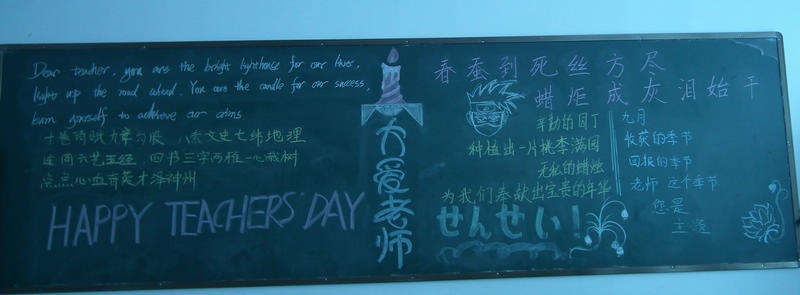 Dear teacher, you are the bright lighthouse for our lives,
lights up the road ahead. You are the candle for our success,
burn yourself to achieve our
八索文史七纬地理
连同六艺五经，四书三字两雅一心栽树
点点心血育英才泽神州
HAPPY TEACHERS' DAY
大爱老师
春蚕到死丝方尽
蜡炬成灰泪始干
辛勤的园丁
种植出一片桃李满园
无私的蜡烛
为我们奉献出宝贵的年华
せんせい！
九月
收获的季节
回报的季节
老师 这个季节
您是
主